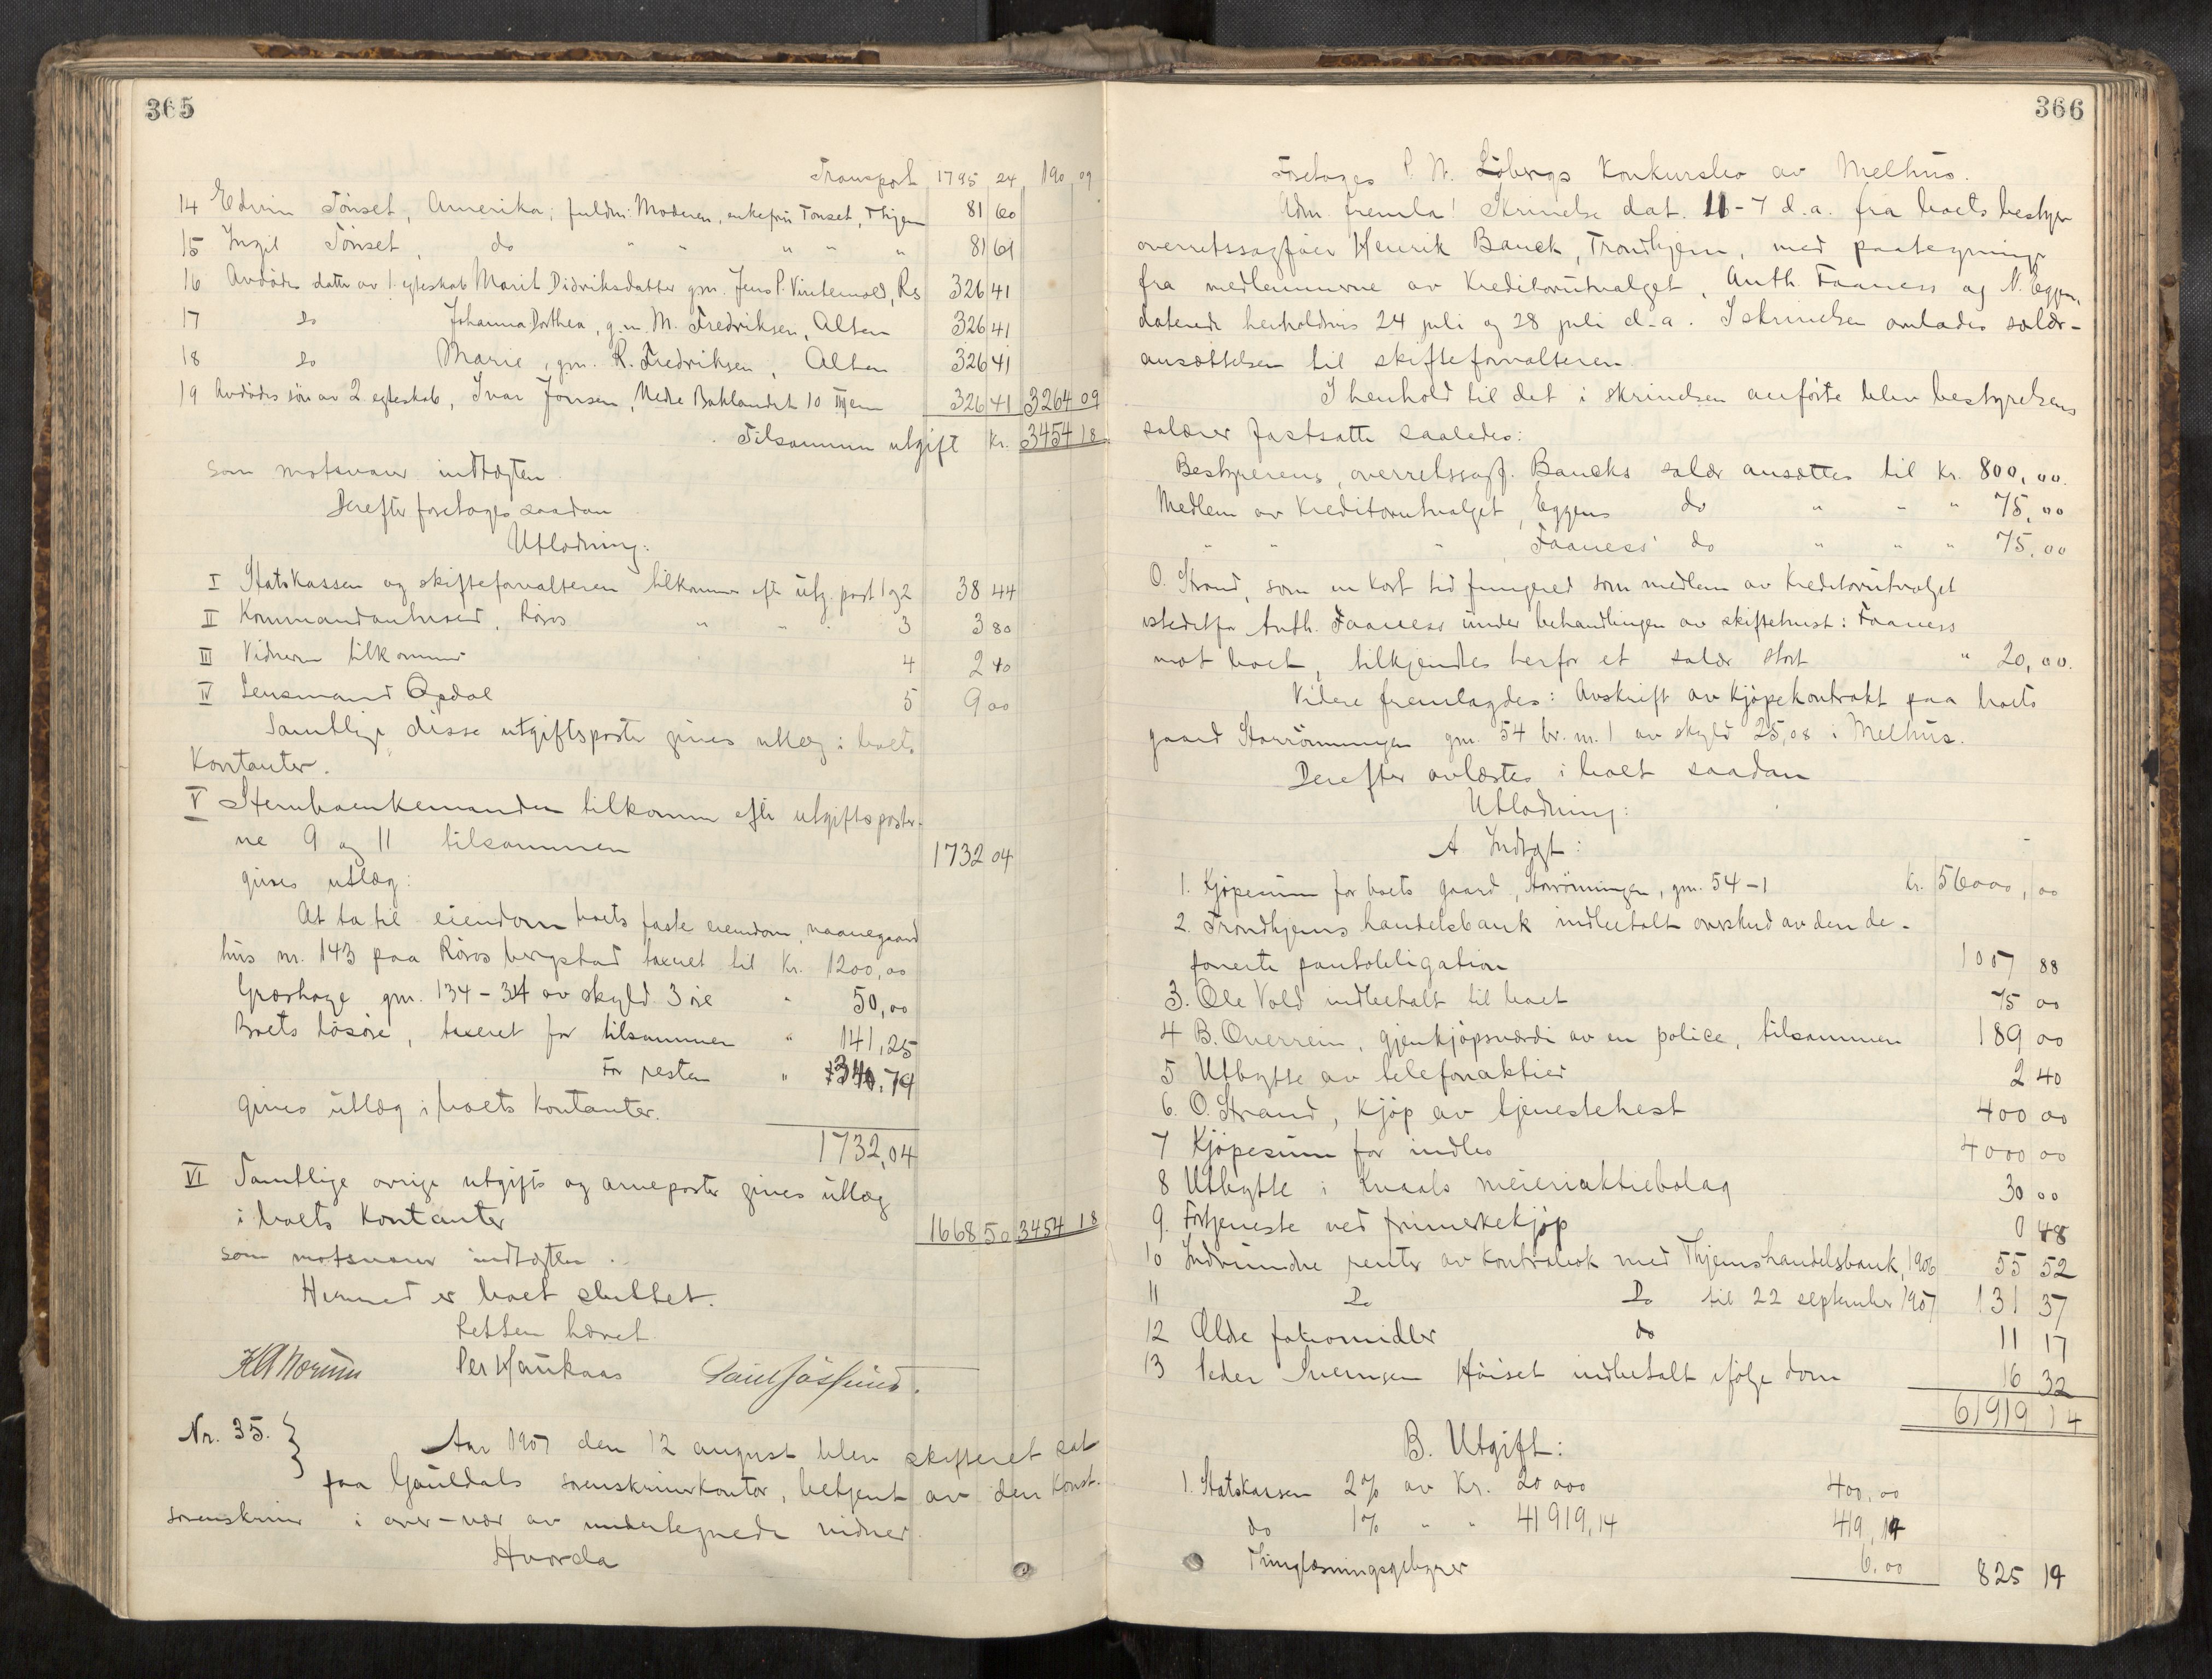 365
Transport 1795 24 190,09
14 Edvin Tönset, Amerika; fuldm: Moderen, enkefru Tönset, Thjem 81 60
15 Ingil Tönset, do " " " " " 81 61
16 Avdödes datter av 1. egteskab Marit Didriksdatter gm. Jens P. Vintervold, Rs 326 41
17 Do Johanna Dorthea, g.m. M. Fredriksen, Alten 326 41
18 Do Marie, gm. R. Fredriksen, Alten 326 41
19 Avdödes sön av 2 egteskab, Ivar Jonsen, Nedre Baklandet 10 Thjem 326 41 3264 09
Tilsammen utgift kr. 3454 18
som motsvarer indtægten.
Derefter foretages saadan
Utlodning:
I Statskassen og skifteforvalteren tilkommer eft. utg. post 1 og 2 38 44
II Kommandanhused, Röros " " 3 3 80
III Vidnerne tilkommer 4 2 40
IV Lensmand Opdal 5 9 00
Samtlige disse utgiftsposter gives utlæg i boets
Kontanter.
V Stervboenkemanden tilkommer efter utgiftsposter-
ne 9 og 11 tilsammen 1732 04
gives utlæg:
At ta til eiendom boets faste eiendom, vaanegaard
hus nr. 143 paa Röros bergstad taxeret til Kr. 1200,00
Græshage gm. 134-34 av skyld 3 öre " 50,00
Boets lösöre, taxeret for tilsammen " 141,25
For resten " 340,79
gives utlæg i boets Kontanter.
1732,04
VI Samtlige övrige utgifts og arveposter gives utlæg
i boets Kontanter 1668 50 3454 18
som motsvarer indtægten.
Hermed er boet sluttet.
Retten hævet.
Per Haukaas
Nr. 35. } Aar 1907 den 12 august blev skifteret sat
paa Gauldals sorenskriverkontor, betjent av den Konst.
sorenskriver i over-vær av undertegnede vidner.
Hvorda
366
Foretages P. N. Löbergs Konkursbo av Melhus.
Adm. fremla: Skrivelse dat. 11-7 d.a. fra boets bestyrer
overretssagförer Henrik Bauck, Trondhjem, med paategninger
fra medlemmerne av Kreditorutvalget, Anth. Faaness og N. Eggen,
daterede henholdsvis 24 juli og 28 juli d.a. I skrivelsen overlades salær-
ansættelsen til skifteforvalteren.
I henhold til det i skrivelsen anförte blev bestyrelsens
salærer fastsatte saaledes:
Bestyrerens, overretssagf. Baucks salær ansættes til Kr. 800,00.
Medlem av Kreditorutvalget, Eggens do " " " 75,00
" " " Faaness' do " " " 75,00
O. Strand, som en kort tid fungered som medlem av Kreditorutvalget
istedetfor Anth. Faaness under behandlingen av skiftetvist: Faaness
mot boet, tilkjendtes herfor et salær stort " 20,00.
Videre fremlagdes: Avskrift av kjöpekontrakt paa boets
gaard Storrönningen gm. 54 br. nr. 1 av skyld 25,08 i Melhus.
Derefter avlæstes i boet saadan
Utlodning:
A Indtægt:
1. Kjöpesum for boets gaard, Storrönningen, gm. 54-1 Kr. 56000,00
2. Trondhjems handelsbank indbetalt overskud av den de-
ponerte pantobligation 1007 88
3. Ole Vold indbetalt til boet 75 00
4 B. Overrein, gjenkjöpsværdi av en police, tilsammen 189 00
5 Utbytte av telefonaktier 2 40
6. O. Strand, kjöp av tjenestehest 400 00
7 Kjöpesum for indbo 4000 00
8 Utbytte i Kvaals meieriaktiebolag 30 00
9. Fortjeneste ved frimerkekjöp 0 48
10 Indvundne renter av kontrabok med Thjems handelsbank, 1906 55 52
11 Do Do til 22 september 1907 131 37
12 do 11 17
13 Peder Sivertsen Höiset indbetalt ifölge dom 16 32
61919 14
B. Utgift:
1. Statskassen 2% av Kr. 20 000 400,00
do 1% " " 41919,14 419,19
Thinglæsningsgebyrer 6.00 825 19